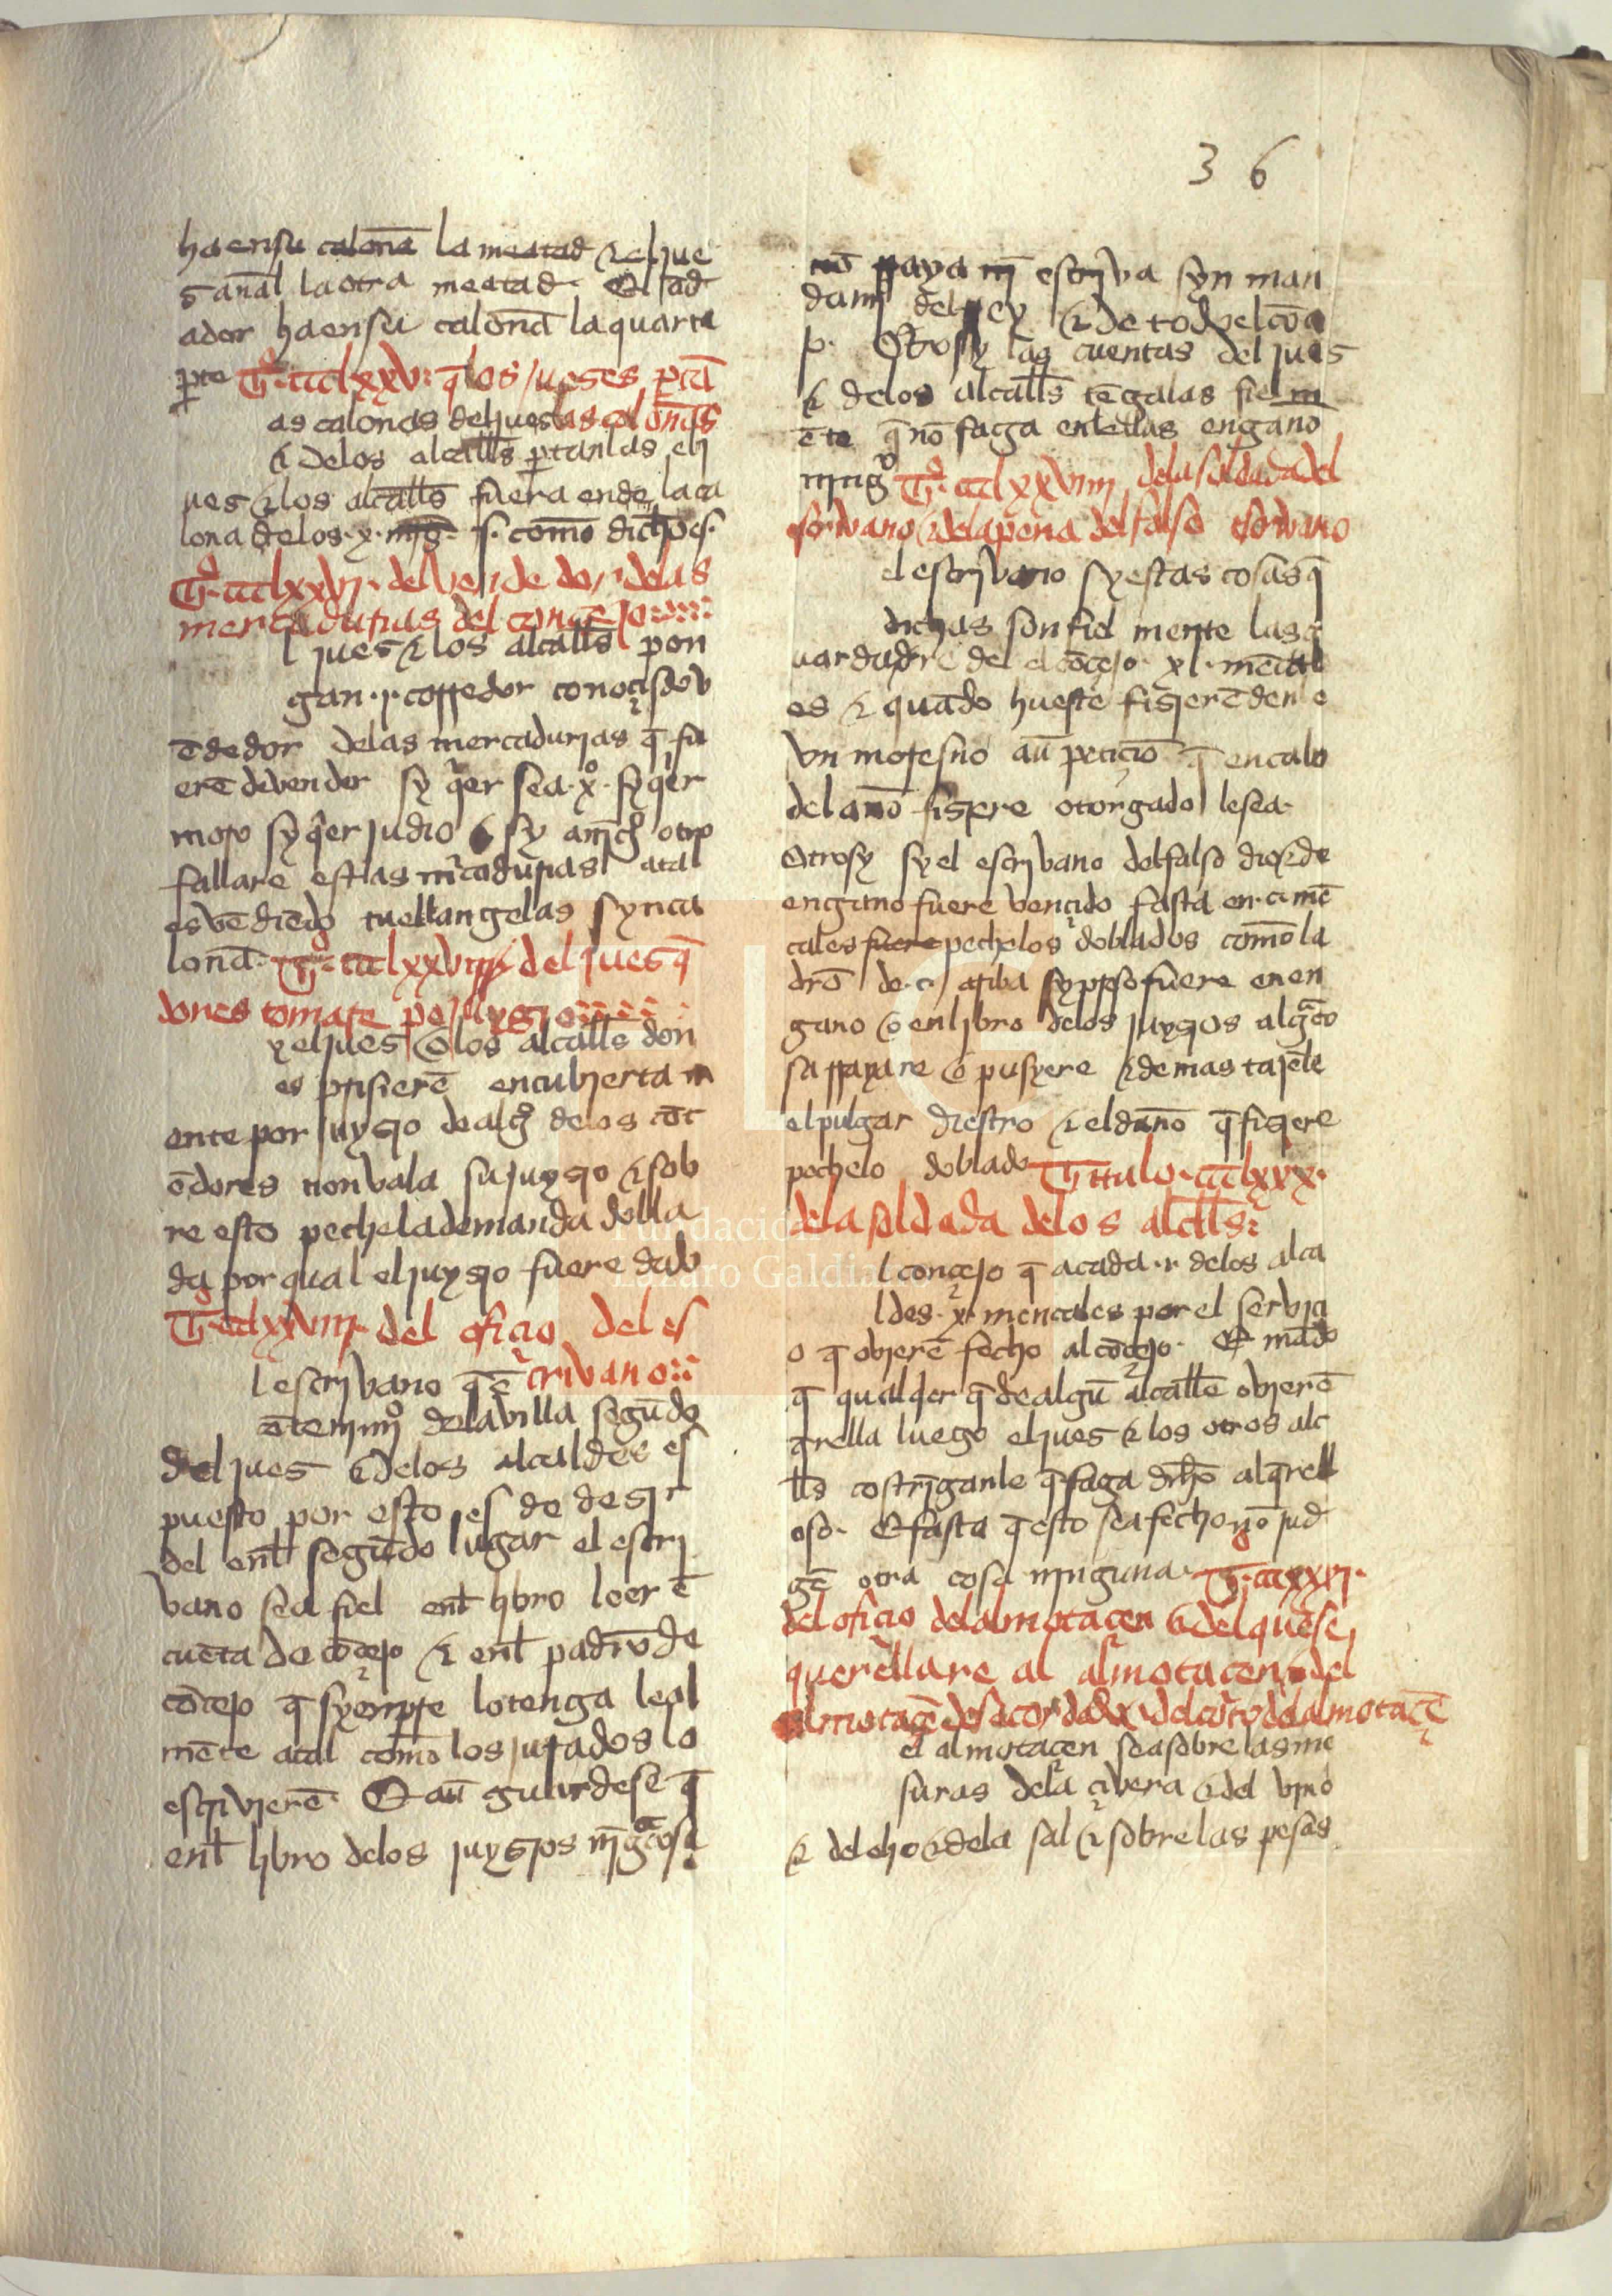 36
ha en su calona la meatad & el jue
s añal la otra meatad. Et el and
ador ha en su caloña la quarta
p̱te Tº. ccclxxv: q̄ los jueses p̱tā
as calonas del jues las calonas
& delos alcalłs p̱tan las el j
ues & los alcalłs fuera ende la ca
lona delos .x. mrs̄. s. como dicho es.
Tº. ccclxxvj. del vendedor delas
mercadurias del conçejo
l jues & los alcalłs pon
gan .j. corredor conosçido v
ēdedor delas mercadurias q̄ fu
erē de vender sy q̄er sea .xº. sy q̄er
moro sy q̄er judio & sy otro
fallare estas m̃cadurias atal
es vēdiēdo tuellangelas syn ca
lonā. Tº. ccclxxvij del jues q̄
dones tomare por juysio
y el jues o los alcalłs don
es prisierē encubierta m
ente por juysio de algº delos cōt
ēdores non vala su juysio & sob
re esto peche la demanda dobla
da por qual el juysio fuere dado
Tº. cclxxviij. del ofiçio del es
l escrivano q̄ ē crivano
ēt̄ termjnº dela villa segūdo
del jues & delos alcaldes es
puesto por esto es de desir
del enł segūdo lugar el escri
vano sea fiel enł libro leer ē
cuēta de cōçejo & enł padrō de
cōçejo q̄ syempre lo tenga leal
mēte atal como los jurados lo
escrivierē Et aū guardese q̄
enł libro delos juysios nīgª cosa
nō rraya nī escriva syn man
damjº del rrey & de todo el cōçe
jº. Otrosy las cuentas del jues
& delos alcalłs tēgalas fiel m
ēte q̄ nō faga en ellas engaño
njngº Tº. cclxxviiij. dela soldada del
escrivano & dela pena del falso escrivano
el escrivano sy estas cosas q̄
dichas son fiel mente las g
uardare del el cōçejo .xl. mēcal
es & quādo hueste fisierē den le
un moro sy nō aū petiçiō q̄ en cabo
del año fisiere otorgado le sea.
Otrosy sy el escrivano del falso dicho de
engano fuere vençido fasta en .c. mē
cales fuere pechelos doblados como la
drō de .c. arriba sy preso fuere en en
gano o en libro delos juysios algª co
sa rrayare o pusyere & demas tajēle
el pulgar diestro & el daño q̄ fisiere
pechelo doblado Titulo. ccclxxx.
dela soldada delos alcalłs
l conçejo q̄ a cada .j. delos alca
ldes .x. mencales por el serviçi
o q̄ obierē fecho al cōçejo. Et mādo
q̄ qualq̄er q̄ de algū alcałłe obierē
q̄rella luego el jues & los otros alc
łłs costrīganle q̄ faga drħo al q̄rell
oso. E fasta q̄ esto sea fecho nō jud
gē otra cosa njnguna. Tº. cclxxxj.
del ofiçio del almotaçen & del que se
querellare al almotaçen & del
almotaçē desacordado & del coto del almotaçē
el almotaçen sea sobre las me
suras dela çivera & del vino
& del olio & dela sal & sobre las pesas